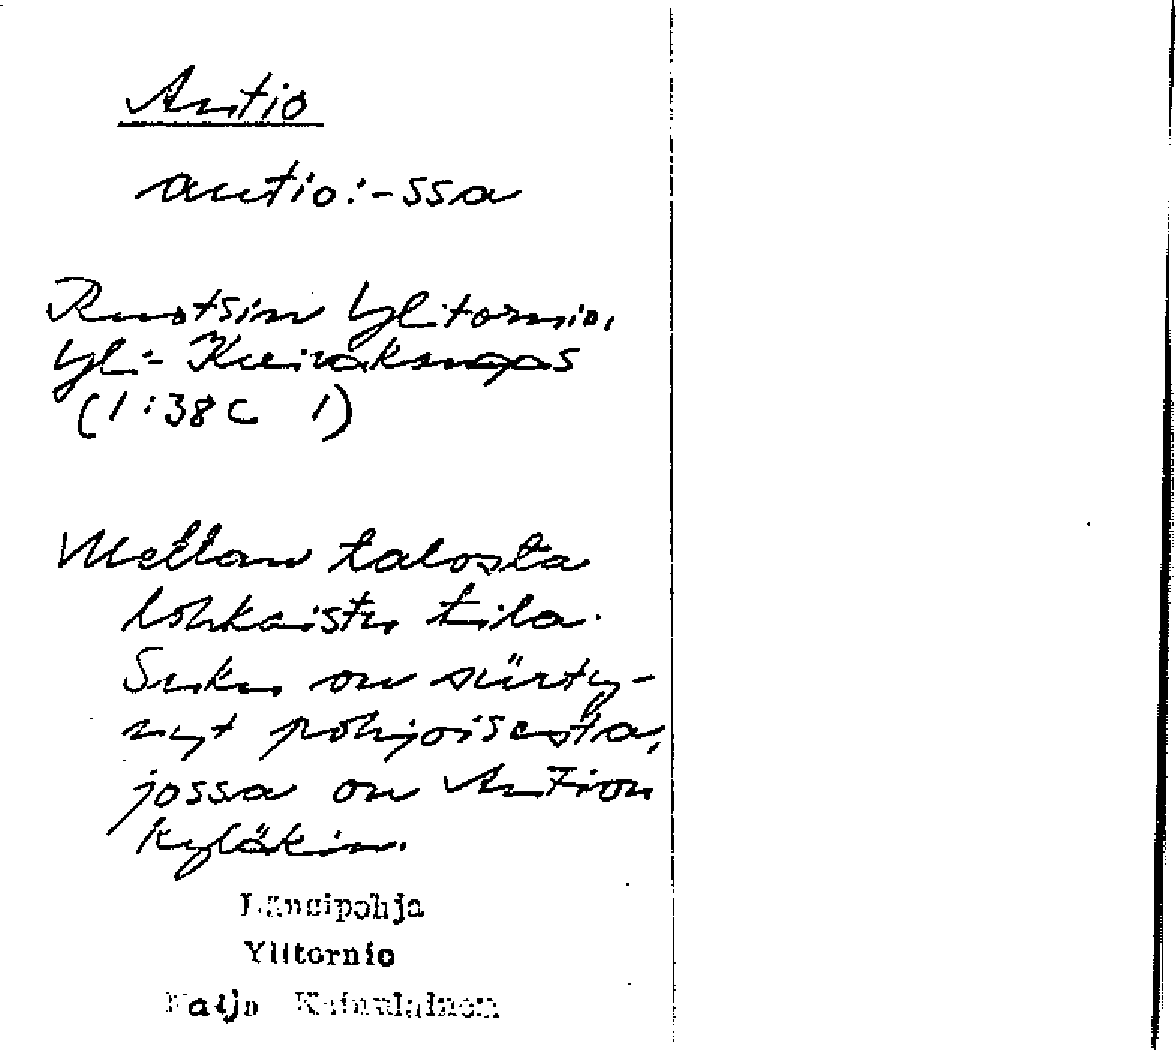 Autio
autio:-ssa
Ruotsin Ylitornio,
Yli-Kuivakangas
(1:38C 1)
Mellan talosta
lohkaistu tila.
Suku on siirty-
nyt pohjoisesta,
jossa on Aution
kyläkin.
Länsipohja
Ylitornio
Kainulainen